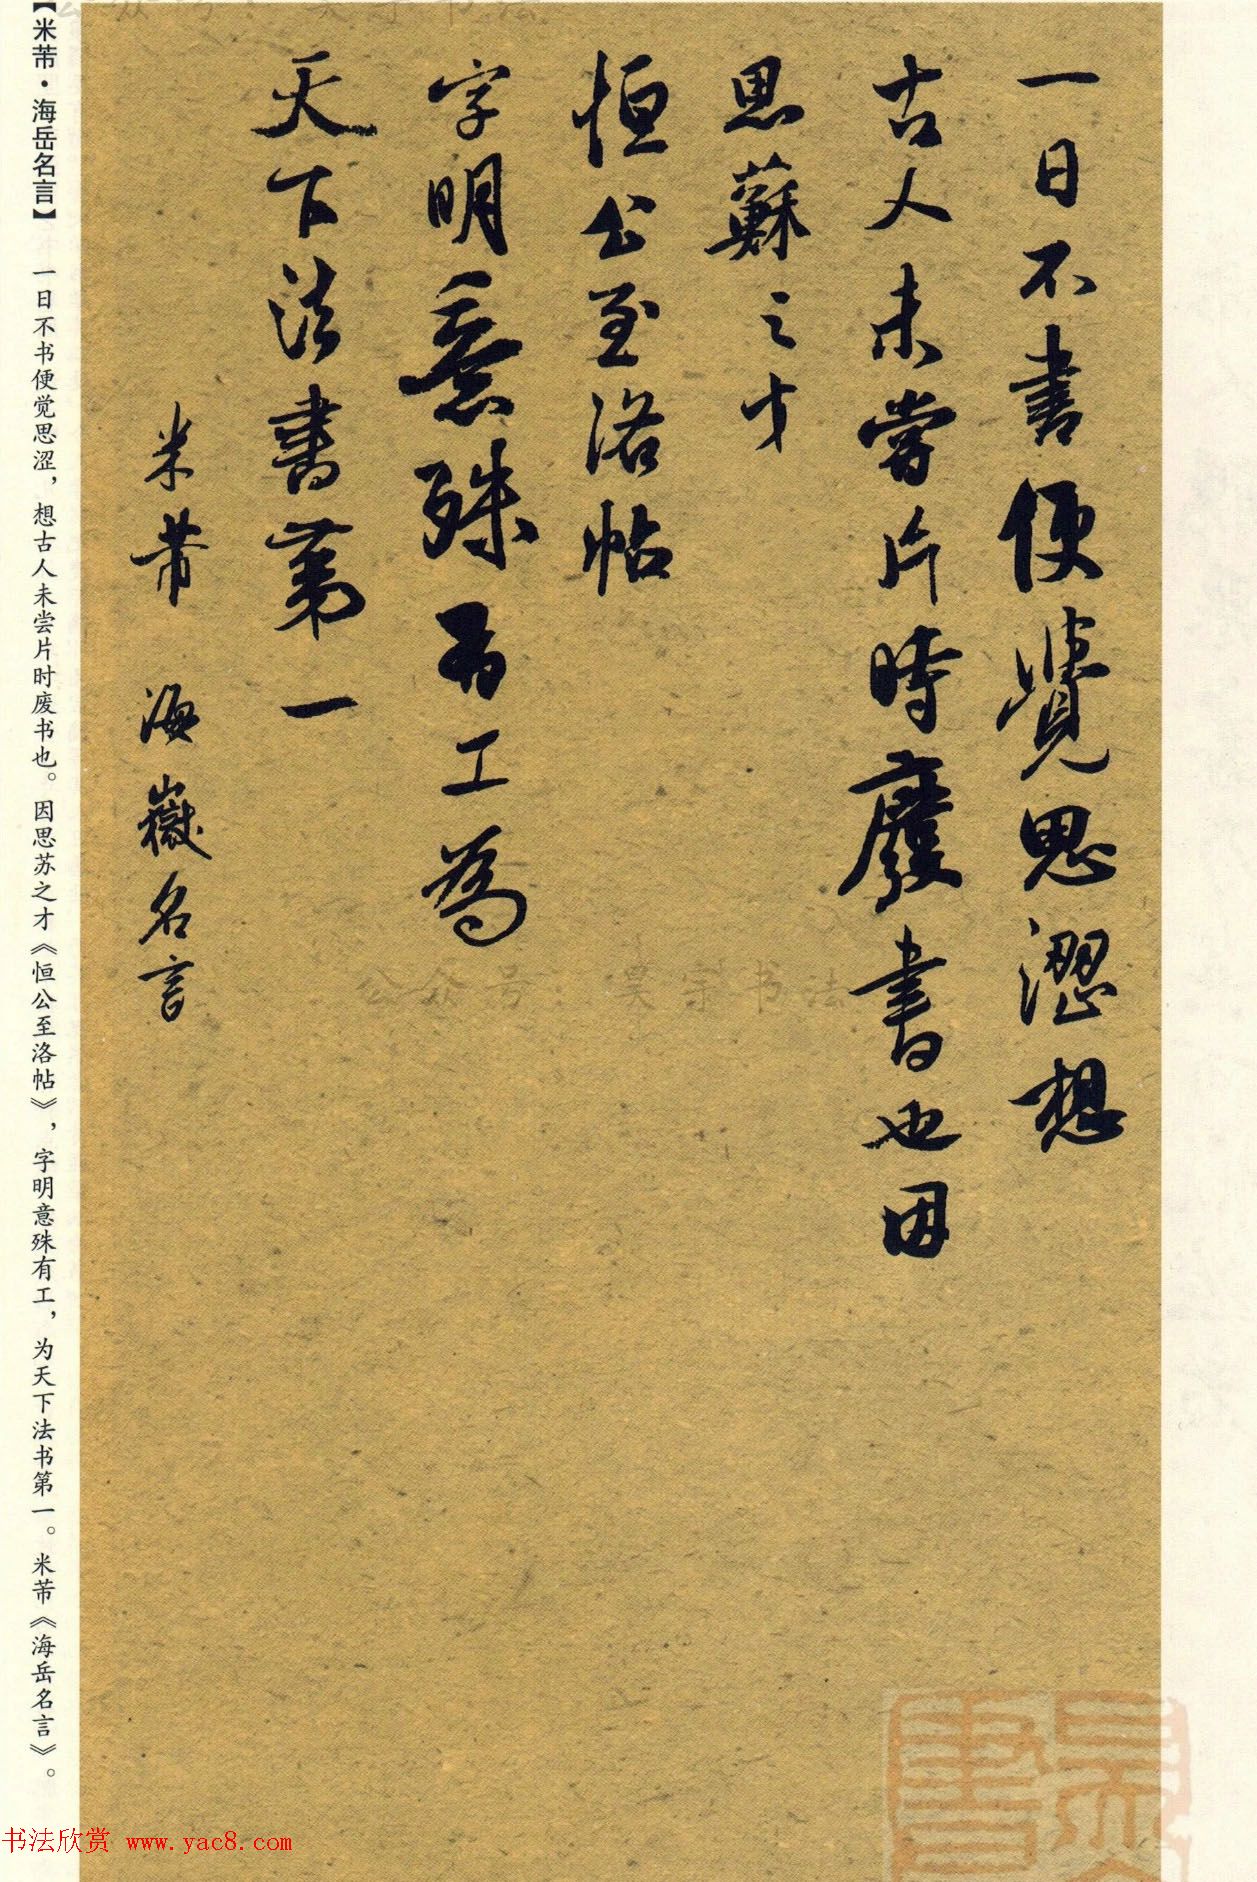 一日不書便覺思澀想
古人未嘗片時廢書也因
思蘇之才
恒公至洛帖
字明意殊有工為
天下法書第一
米芾 海嶽名言
【米芾·海岳名言】 一日不书便觉思涩，想古人未尝片时废书也。因思苏之才《恒公至洛帖》，字明意殊有工，为天下法书第一。米芾《海岳名言》。
公众号：吴宗书法
书法欣赏 www.yac8.com